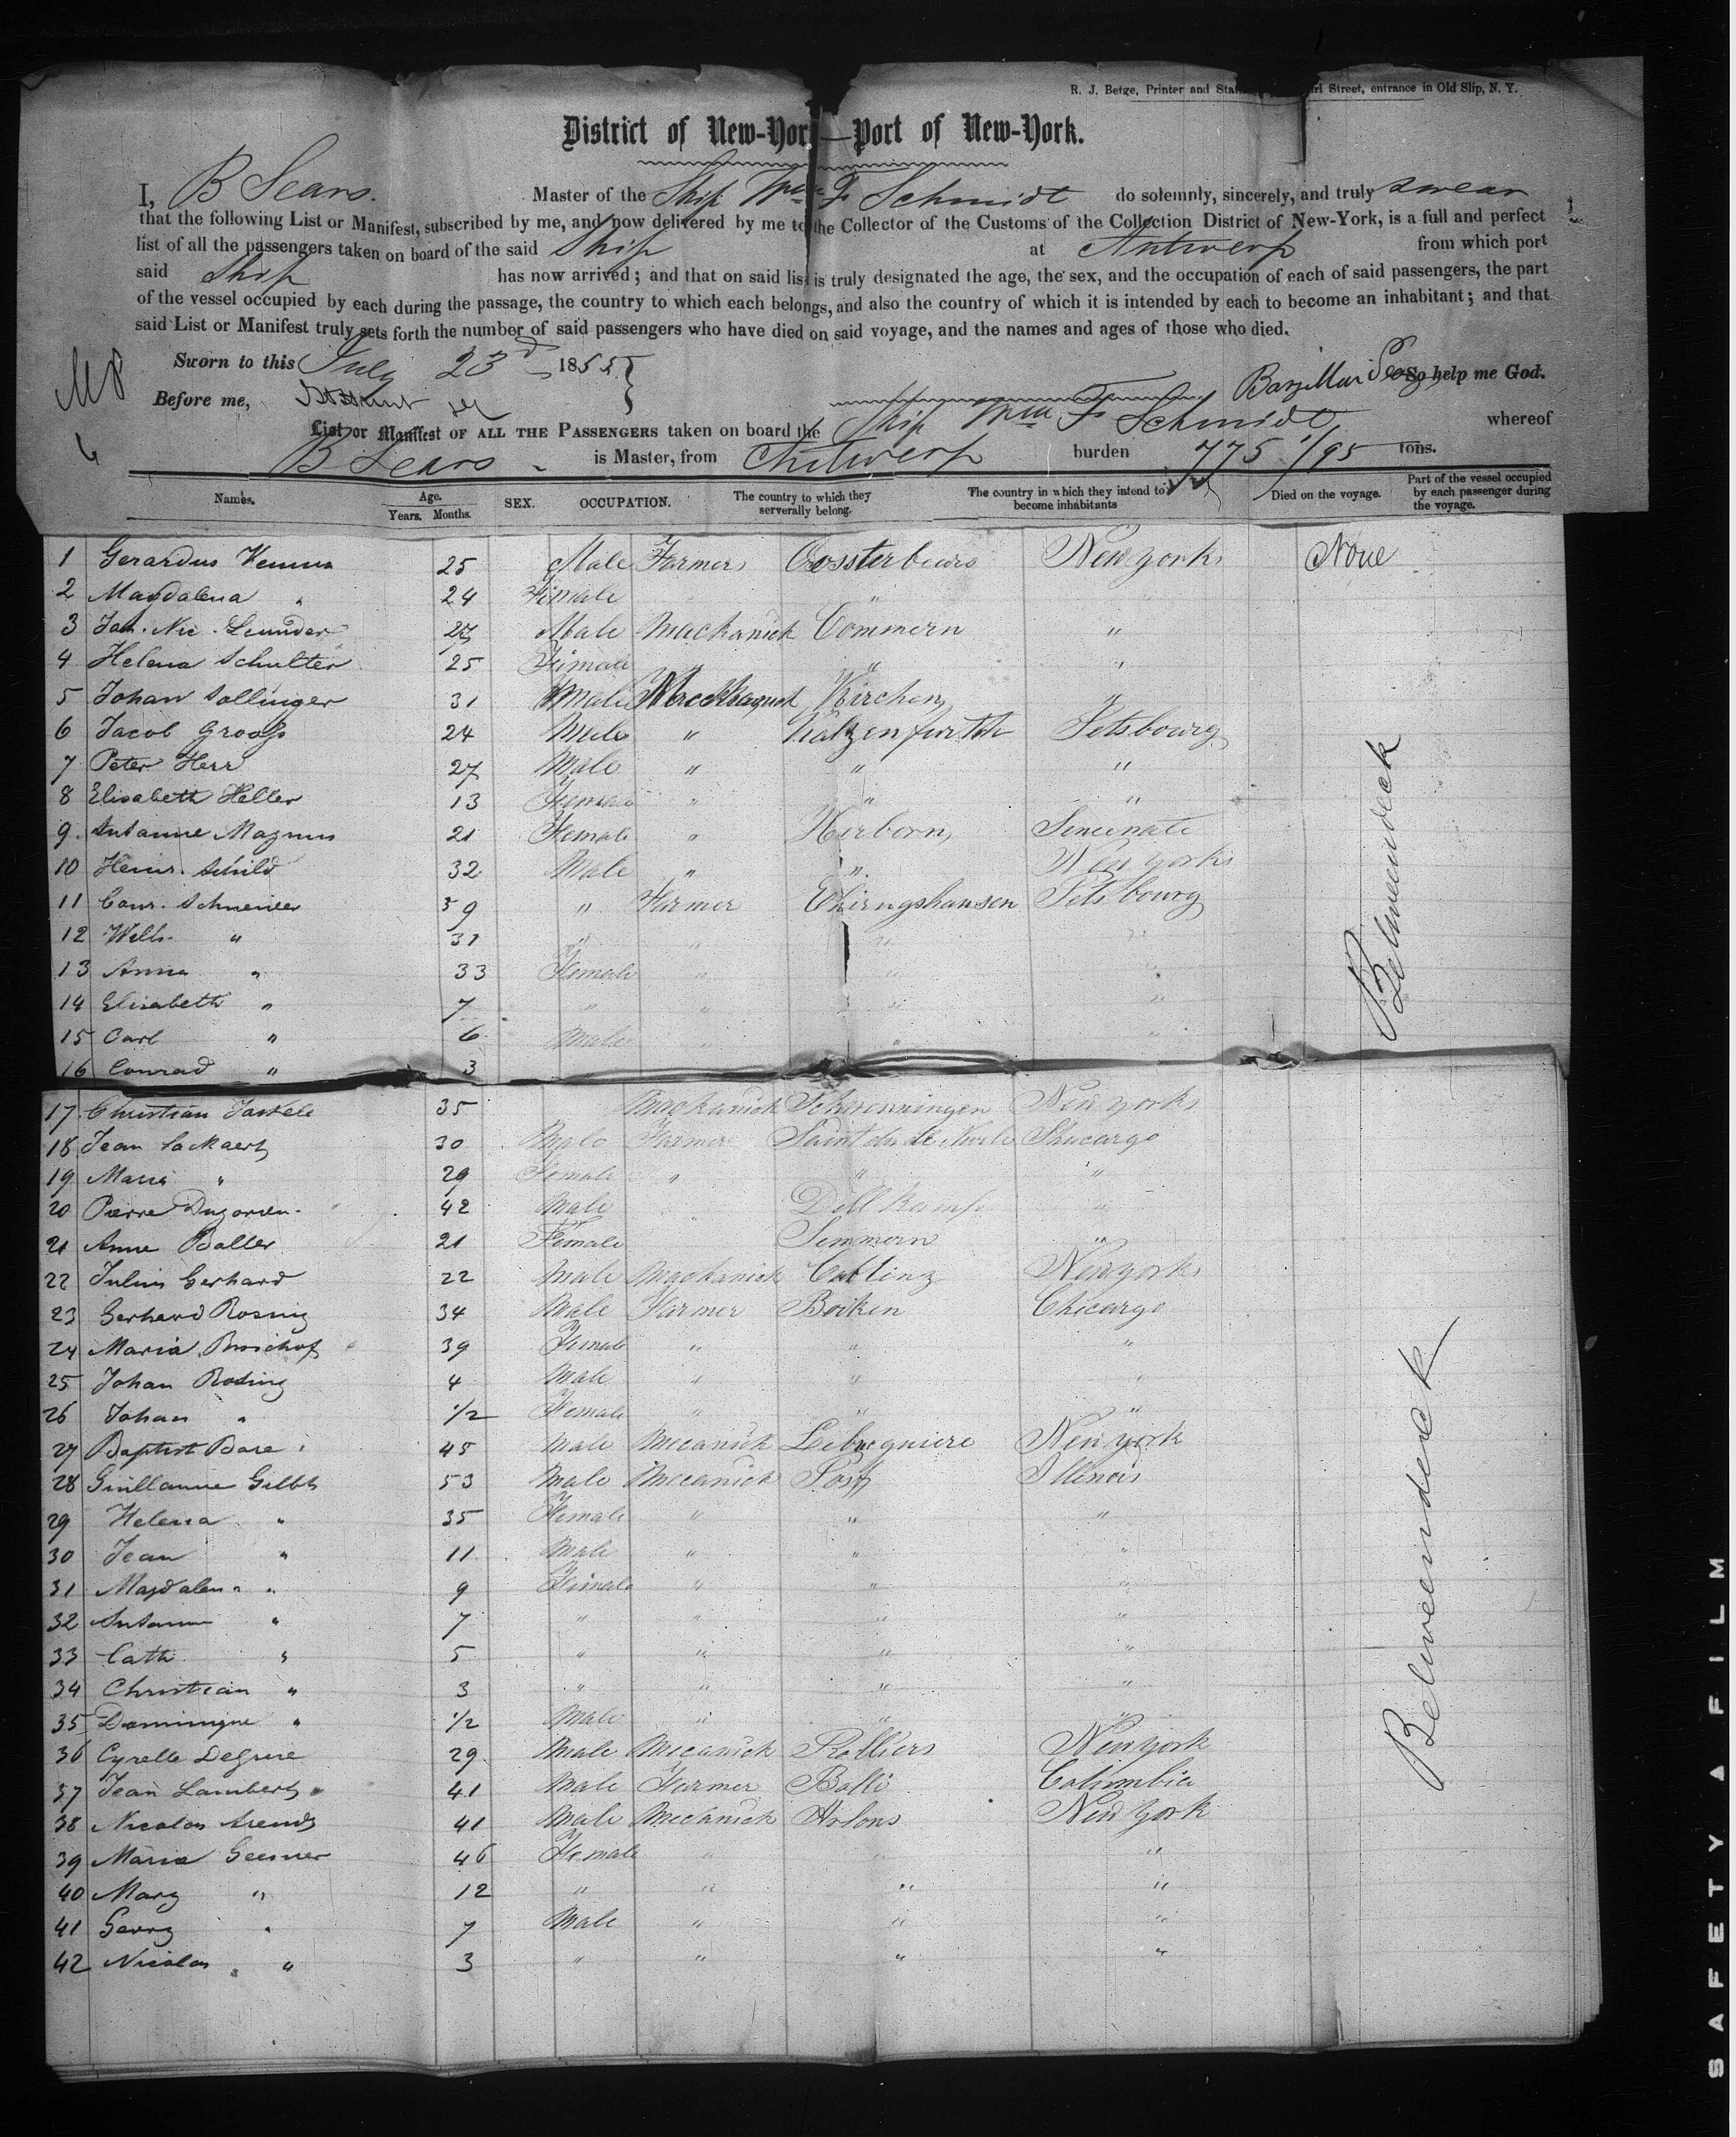 R. J. Betge, Printer and Street, entrance in Old Slip, N. Y.
District of New-York—Port of New-York.
I, B Sears. Master of the Ship Wm F Schmidt do solemnly, sincerely, and truly swear
that the following List or Manifest, subscribed by me, and now delivered by me to the Collector of the Customs of the Collection District of New-York, is a full and perfect
list of all the passengers taken on board of the said Ship at Antwerp from which port
said Ship has now arrived; and that on said list is truly designated the age, the sex, and the occupation of each of said passengers, the part
of the vessel occupied by each during the passage, the country to which each belongs, and also the country of which it is intended by each to become an inhabitant; and that
said List or Manifest truly sets forth the number of said passengers who have died on said voyage, and the names and ages of those who died.
Sworn to this July 23d 1855 So help me God.
Before me,
List or Manifest OF ALL THE PASSENGERS taken on board the Ship Wm F Schmidt whereof
B Sears is Master, from Antwerp burden 775 1/95 tons.
Names. Age. Years. Months. SEX. OCCUPATION. The country to which they serverally belong. The country in which they intend to become inhabitants Died on the voyage. Part of the vessel occupied by each passenger during the voyage.
1 Gerardus 25 Male Farmer New york None
2 Magdalena " 24 Female " "
3 Joh. Nic. 27 Male Mackanick Commern "
4 Helena Schulter 25 Female " " "
5 Johan Sollinger 31 Male Kirchen "
6 Jacob Groos 24 Male " Katzenfurth Pitsbourg
7 Peter Herr 27 Male " " "
8 Elisabeth Heller 13 Female " " "
9. Antanne Magnus 21 Female " Herborn Sincinate
10 Henr. Schild 32 Male " " New york
11 Conr. 59 " Farmer Ehringshausen Pitsbourg
12 Wilh. " 31 " " " "
13 Anna " 33 Female " " "
14 Elisabeth " 7 " " " "
15 Carl " 6 Male " " "
16 Conrad " 3
17 Christian 35 Mackanick Schwenningen New york
18 Jean 30 Male Farmer Shicargo
19 Maria " 29 Female " " "
20 Pierre 42 Male " "
21 Anne Baller 21 Female Semmern "
22 Julius Gerhard 22 Male Mackanick Coblinz New york
23 Gerhard Rosing 34 Male Farmer Boiken Chicargo
24 Maria 39 Female " " "
25 Johan Rosing 4 Male " " "
26 Johan " 1/2 Female " " "
27 Baptist Bare 45 Male Mecanick New york
28 Guillaume 53 Male Mecanick Illinois
29 Helena " 35 Female " " "
30 Jean " 11 Male " " "
31 Magdalena " 9 Female " " "
32 Antanne " 7 " " " "
33 Cath " 5 " " " "
34 Christian " 3 " " " "
35 Dominique " 1/2 Male " " "
36 Cyrelle 29 Male Mecanick Rolliers New york
37 Jean Lambert 41 Male Farmer Columbia
38 Nicolas Arends 41 Male Mecanick Arlons New york
39 Maria 46 Female " " "
40 Mary " 12 " " " "
41 " 7 Male " " "
42 Nicolas " 3 " " " "
Betweendeck
Betweendeck
SAFETY A FILM